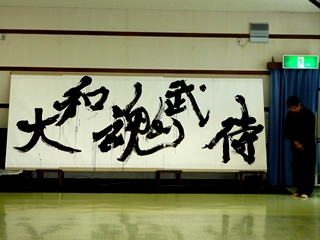 大和魂武侍